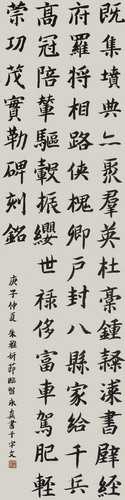 既集墳典亦聚群英杜稾鍾隸漆書壁經
府羅將相路俠槐卿戶封八縣家給千兵
高冠陪輦驅轂振纓世祿侈富車駕肥輕
策功茂實勒碑刻銘
庚子仲夏 朱雅妍節臨智永真書千字文